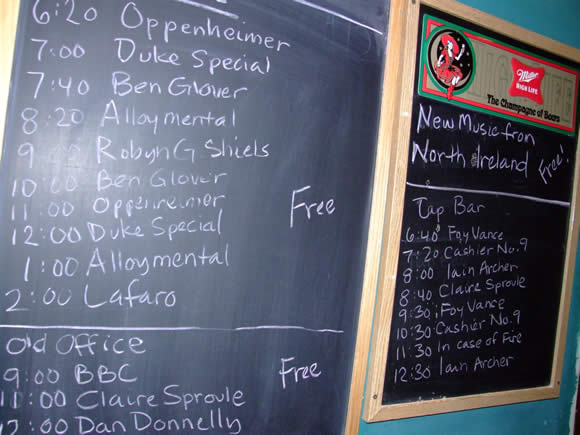 6:20 Oppenheimer
7:00 Duke Special
7:40 Ben Glover
8:20 Alloymental
9:00 Robyn G Shiels
10:00 Ben Glover
11:00 Oppenheimer
12:00 Duke Special
1:00 Alloymental
2:00 Lafaro
Free
Old Office
9:00 BBC
11:00 Claire Sproule
12:00 Dan Donnelly
Free
Miller
HIGH LIFE
The Champagne of Beers
New Music from
North Ireland
Free!
Tap Bar
6:40 Foy Vance
7:20 Cashier No.9
8:00 Iain Archer
8:40 Claire Sproule
9:30 Foy Vance
10:30 Cashier No.9
11:30 In case of Fire
12:30 Iain Archer